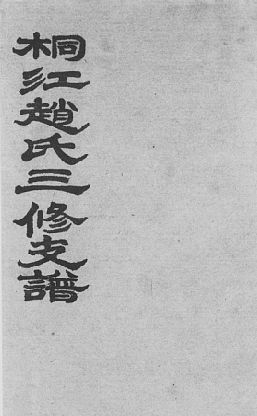 桐江趙氏三修支譜